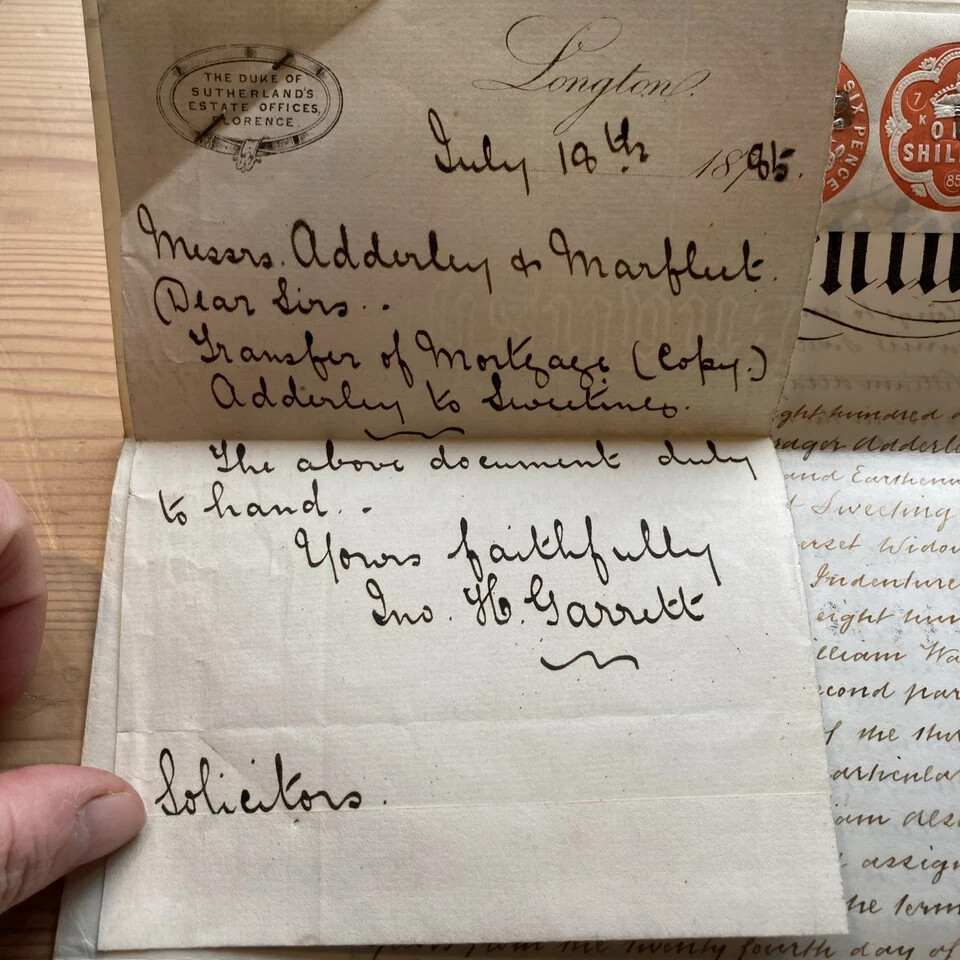 THE DUKE OF
SUTHERLAND'S
ESTATE OFFICES,
FLORENCE.
Longton.
July 18th 1885.
Messrs. Adderley & Marfleet.
Dear Sirs..
Transfer of Mortgage (Copy.)
Adderley to Sweeting.
The above document duly
to hand..
Yours faithfully
Jno. H. Garrett
Solicitors.
SIX PENCE
7
K
SHIL
85
ght hundred
Adderle
and Earthenw
Sweeting
erset Widow
Indenture
eight hun
lliam Wa
econd par
f the
articular
am des
assign
he term
years from the twenty fourth day of